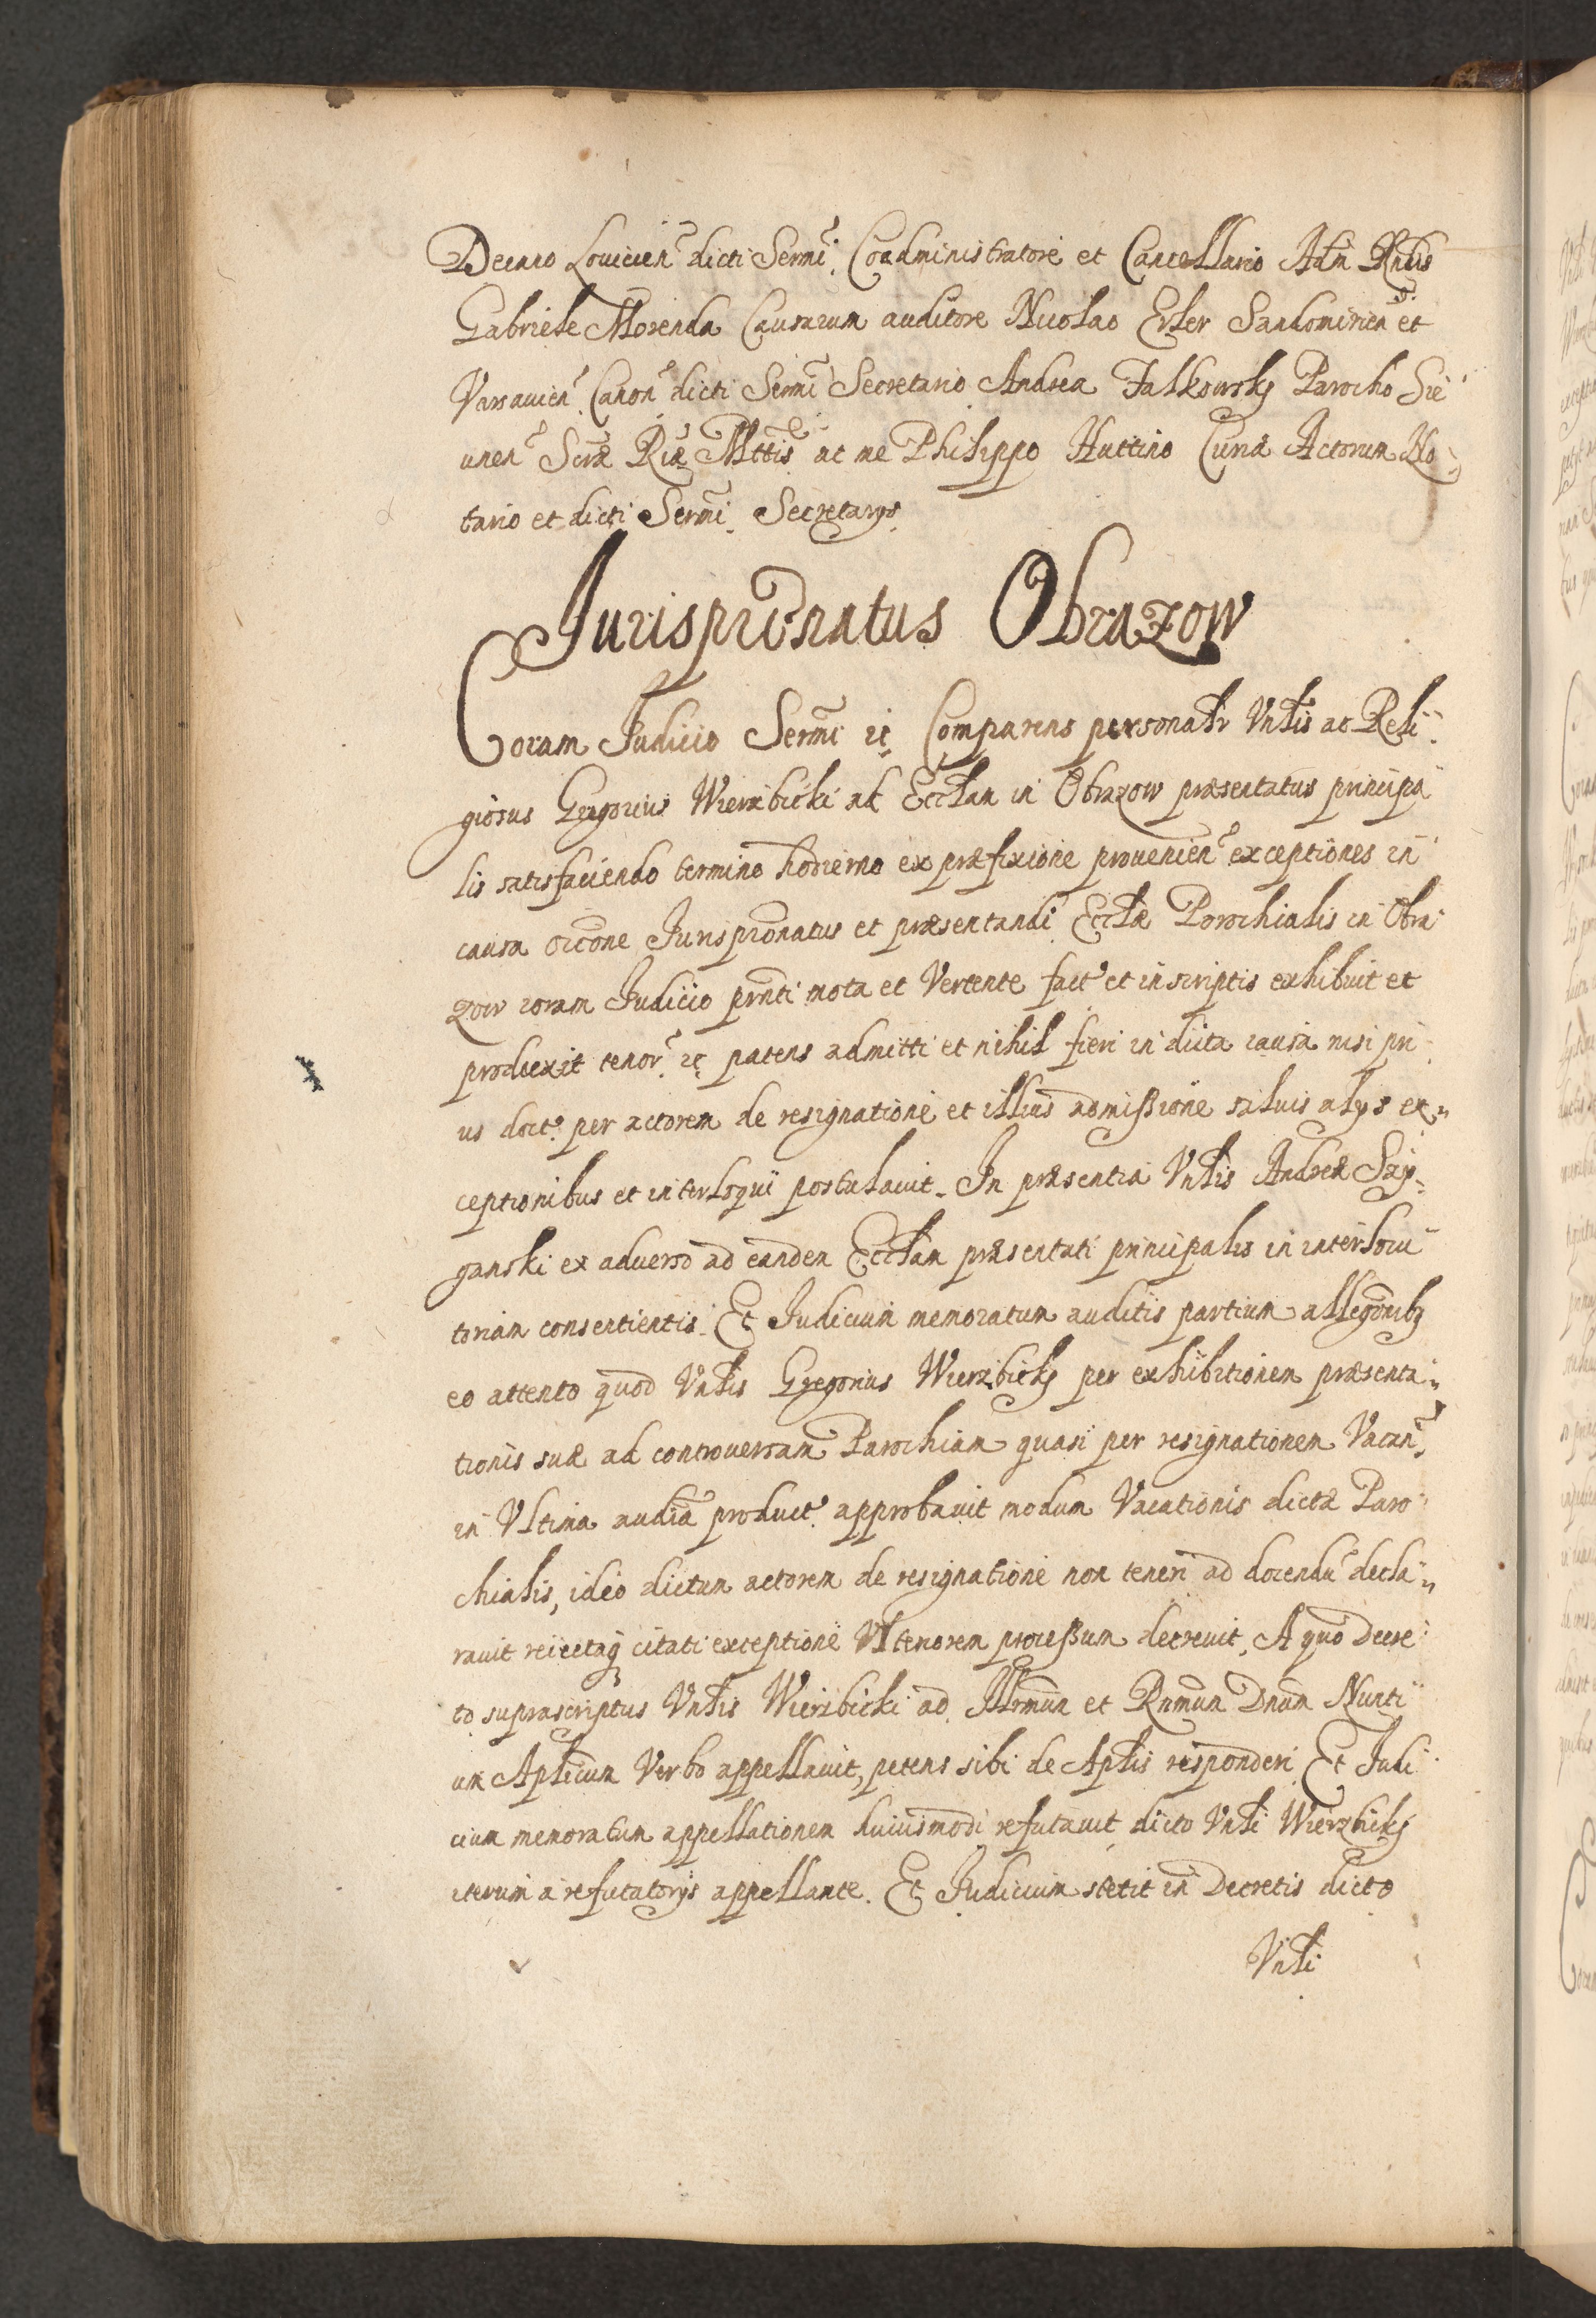 Decano Louicien̄ dicti Sermi. Coadministratore et Cancellario Adm Rndis
Gabriele Morenda Causarum auditore Nicolao Erler Sandomirien̄ et
Varsauien̄. Canon̄ dicti Sermi Secretario Andrea Falkowskj Parocho Sie-
unen̄ Scræ Riæ Mttis ac me Philippo Huttino Curiæ Actorum No-
tario et dicti Sermi. Secretarys.
Jurisprōnatus Obrazow
Coram Judicio Sermi etc Comparens personalr Vnlis ac Reli-
giosus Gregorius Wierzbicki ad Eccłam in Obrazow præsentatus principa-
lis satisfaciendo termino hodierno ex præfixione prouenien̄ exceptiones in
causa oicōne Jurisprōnatus et præsentandi Eccłæ Parochialis in Obra-
zow coram Judicio prnti mota et Vertente fact. et in scriptis exhibuit et
produxit tenor. etc petens admitti et nihil fieri in dicta causa nisi pri-
us doct. per actorem de resignatione et illius admißione saluis alys ex-
ceptionibus et interloqui postulauit. In præsentia Vnlis Andreæ Szy-
ganski ex aduerso ad eandem Eccłam præsentati principalis in interlocu-
toriam consentientis. Et Judicium memoratum auditis partium allegōnibꝫ
eo attento quod Vnlis Gregorius Wierzbickj per exhibitionem præsenta-
tionis suæ ad controuersam Parochiam quasi per resignationem Vacan̄.
in Vltima audiā product. approbauit modum Vacationis dictæ Paro-
chialis, ideo dictum actorem de resignatione non teneri ad docendū decla-
rauit reiectaqꝫ citati exceptione Vltenorem proceßum decreuit. A quo Decre-
to suprascriptus Vnlis Wierzbicki ad Illrmum et Rnmum Dnum Nunti-
um Aplicum Verbo appellauit, petens sibi de Aplis responderi. Et Judi-
cium memoratum appellationem huiusmodi refutauit dicto Vnli Wierzbickj
iterum a refutatorys appellante. Et Judicium stetit in Decretis dicto
Vnli